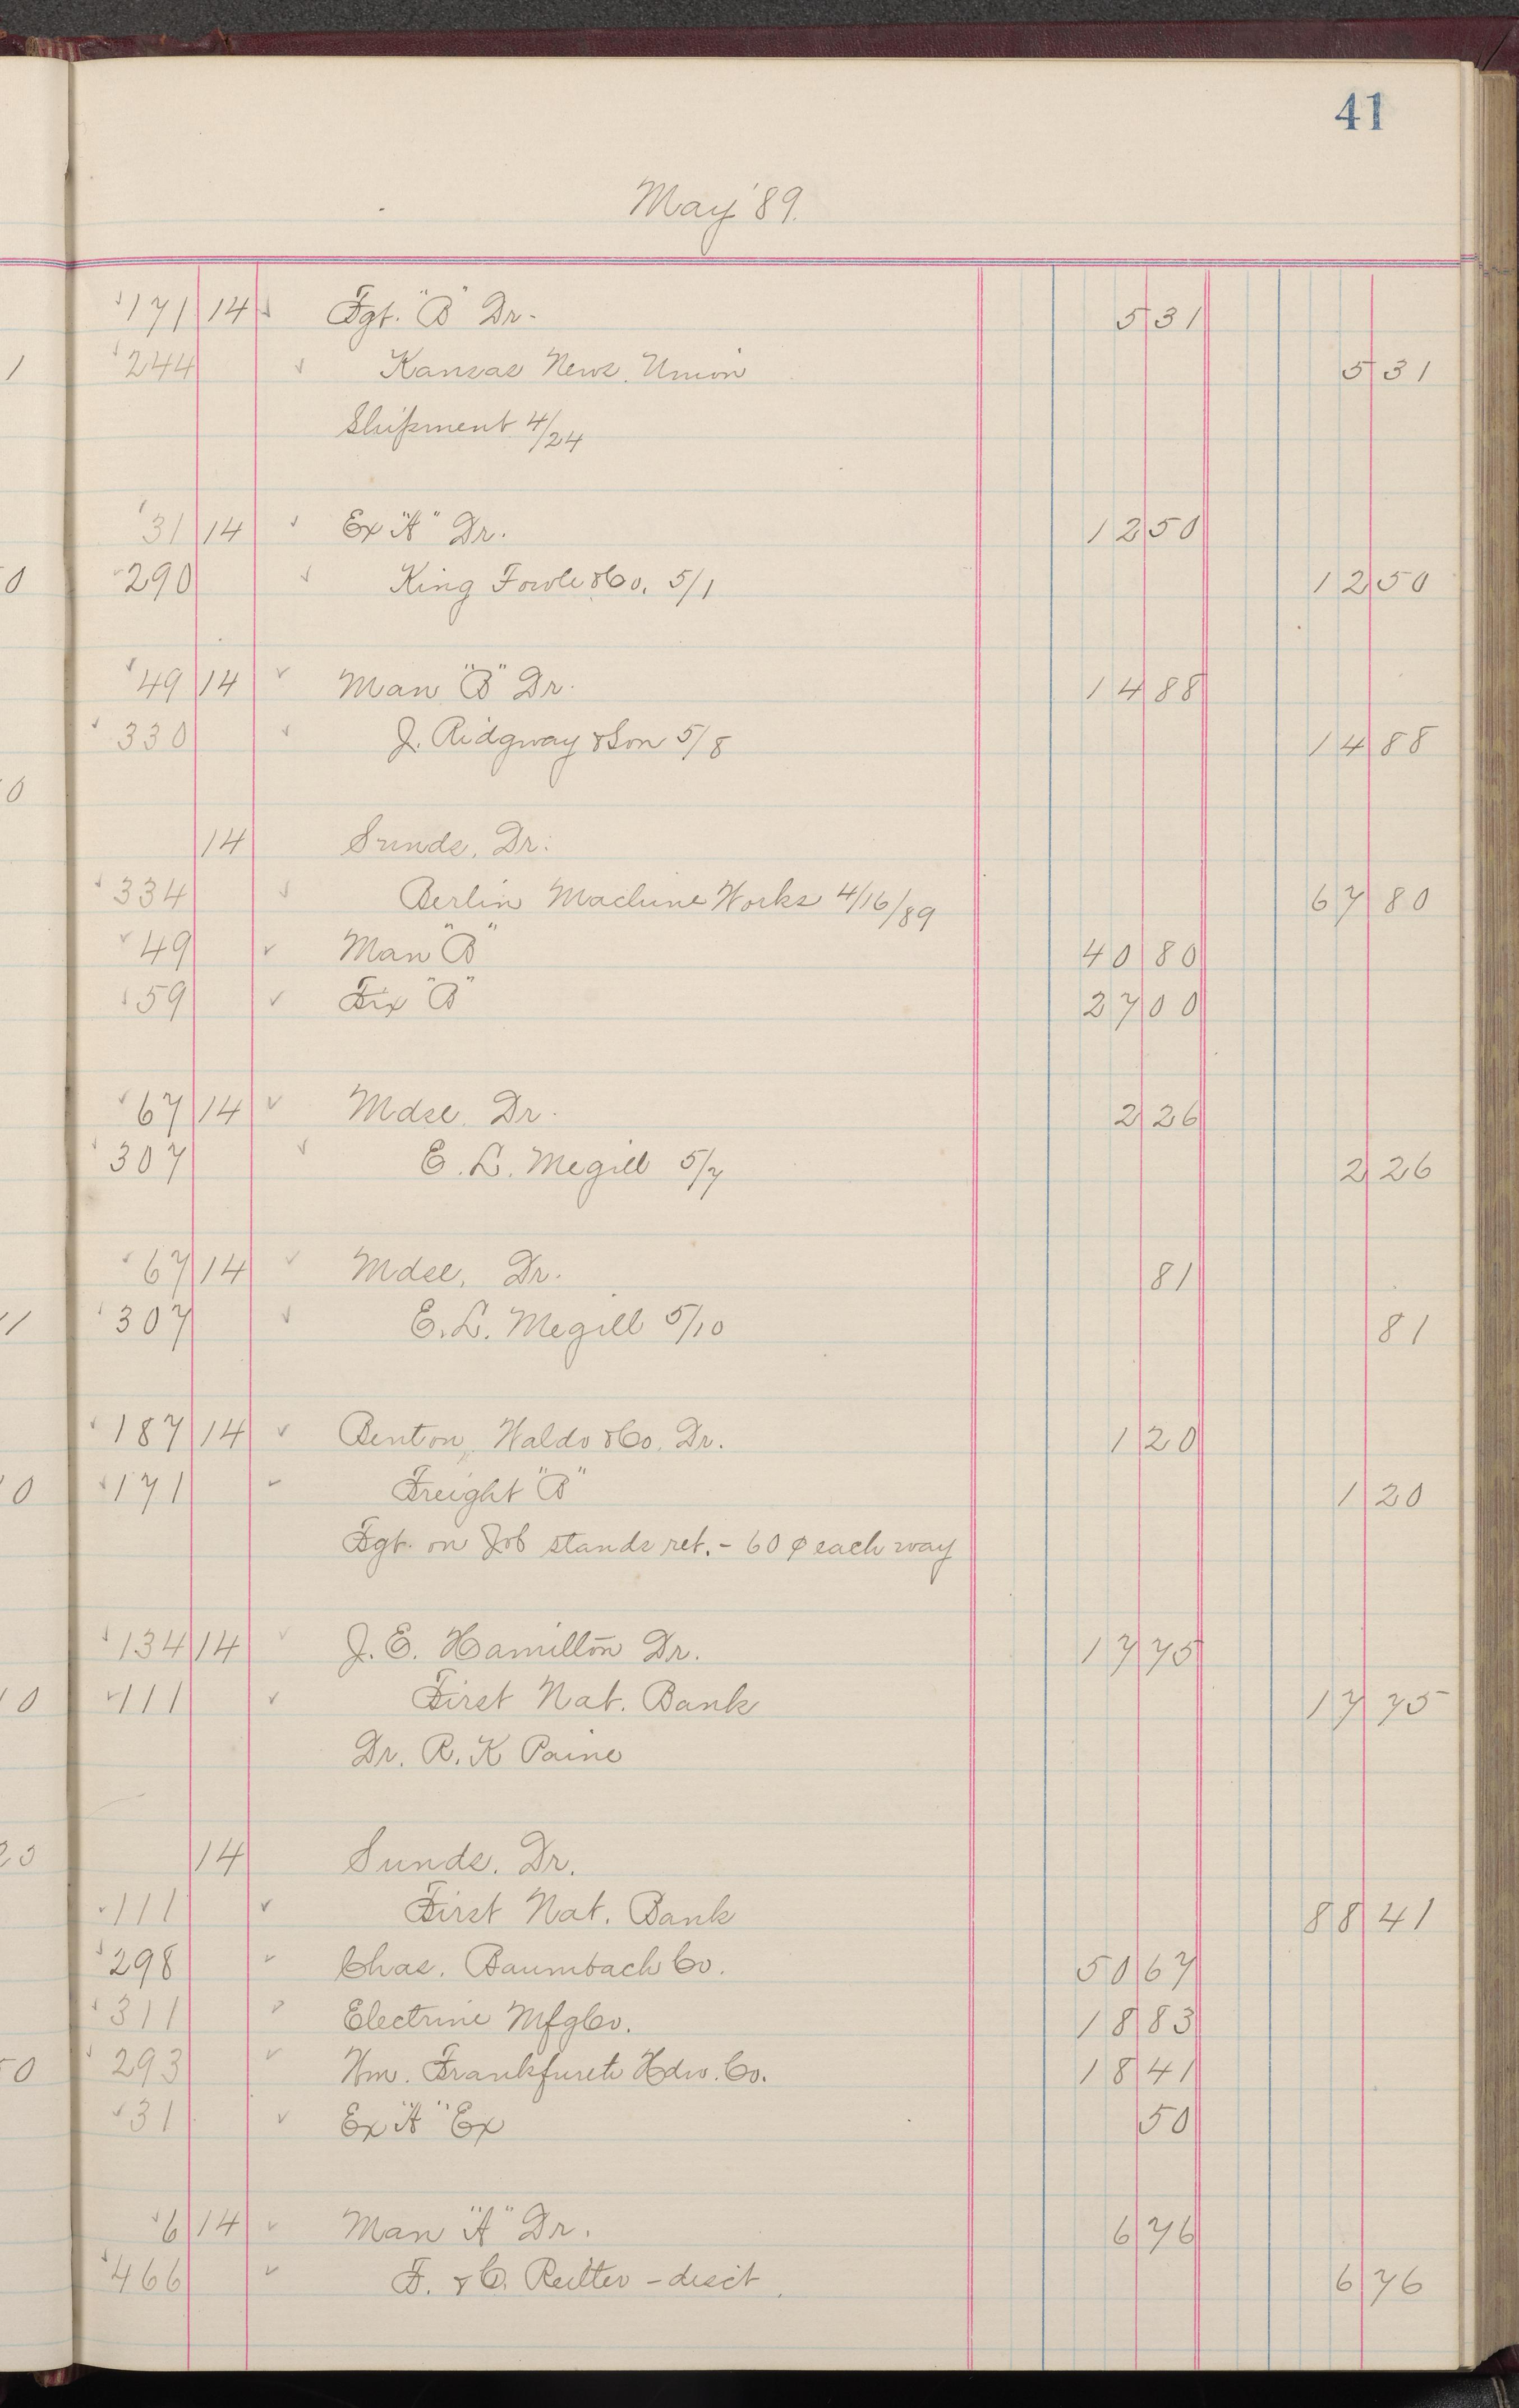 41
May '89.
171 14 Fgt. "B" Dr. 5 31
1 244 Kansas News. Union 5 31
Shipment 4/24
31 14 Ex "A" Dr. 12 50
0 290 King Fowle & Co. 5/1 12 50
49 14 Man "B" Dr. 14 88
330 J. Ridgway & Son 5/8 14 88
0
14 Sunds. Dr.
334 Berlin Machine Works 4/16/89 67 80
49 Man "B" 40 80
59 Fix "B" 27 00
67 14 Mdse. Dr. 2 26
307 E. L. Megill 5/7 2 26
67 14 Mdse. Dr. 81
1 307 E. L. Megill 5/10 81
187 14 Benton, Waldo & Co. Dr. 1 20
0 171 Freight "B" 1 20
Fgt. on Job stands ret. - 60 ¢ each way
134 14 J. E. Hamilton Dr. 17 75
0 111 First Nat. Bank 17 75
Dr. R. K Paine
14 Sunds. Dr.
111 First Nat. Bank 88 41
298 Chas. Baumbach Co. 50 67
311 Electrine Mfg Co. 18 83
50 293 Wm. Frankfurth Hdw. Co. 18 41
31 Ex "A" Ex 50
6 14 Man "A" Dr. 6 76
466 F. & C. Reitter - disct 6 76